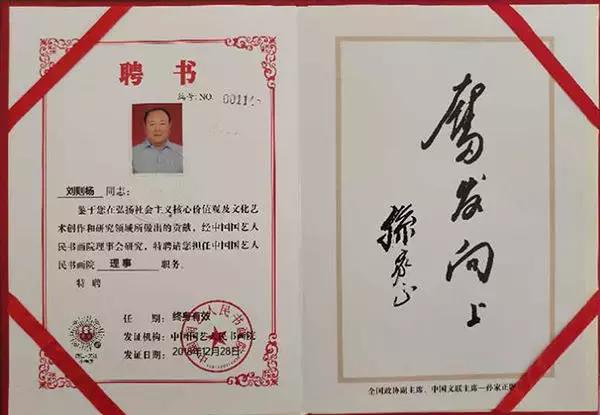 聘书
编号:NO. 0011
刘则杨 同志:
鉴于您在弘扬社会主义核心价值观及文化艺
术创作和研究领域所做出的贡献,经中国国艺人
民书画院理事会研究,特聘请您担任中国国艺人
民书画院 理事 职务。
特聘
任期:终身有效
发证机构:中国国艺人民书画院
发证日期:2018年12月28日
奋发向上
孙家正
全国政协副主席、中国文联主席—孙家正